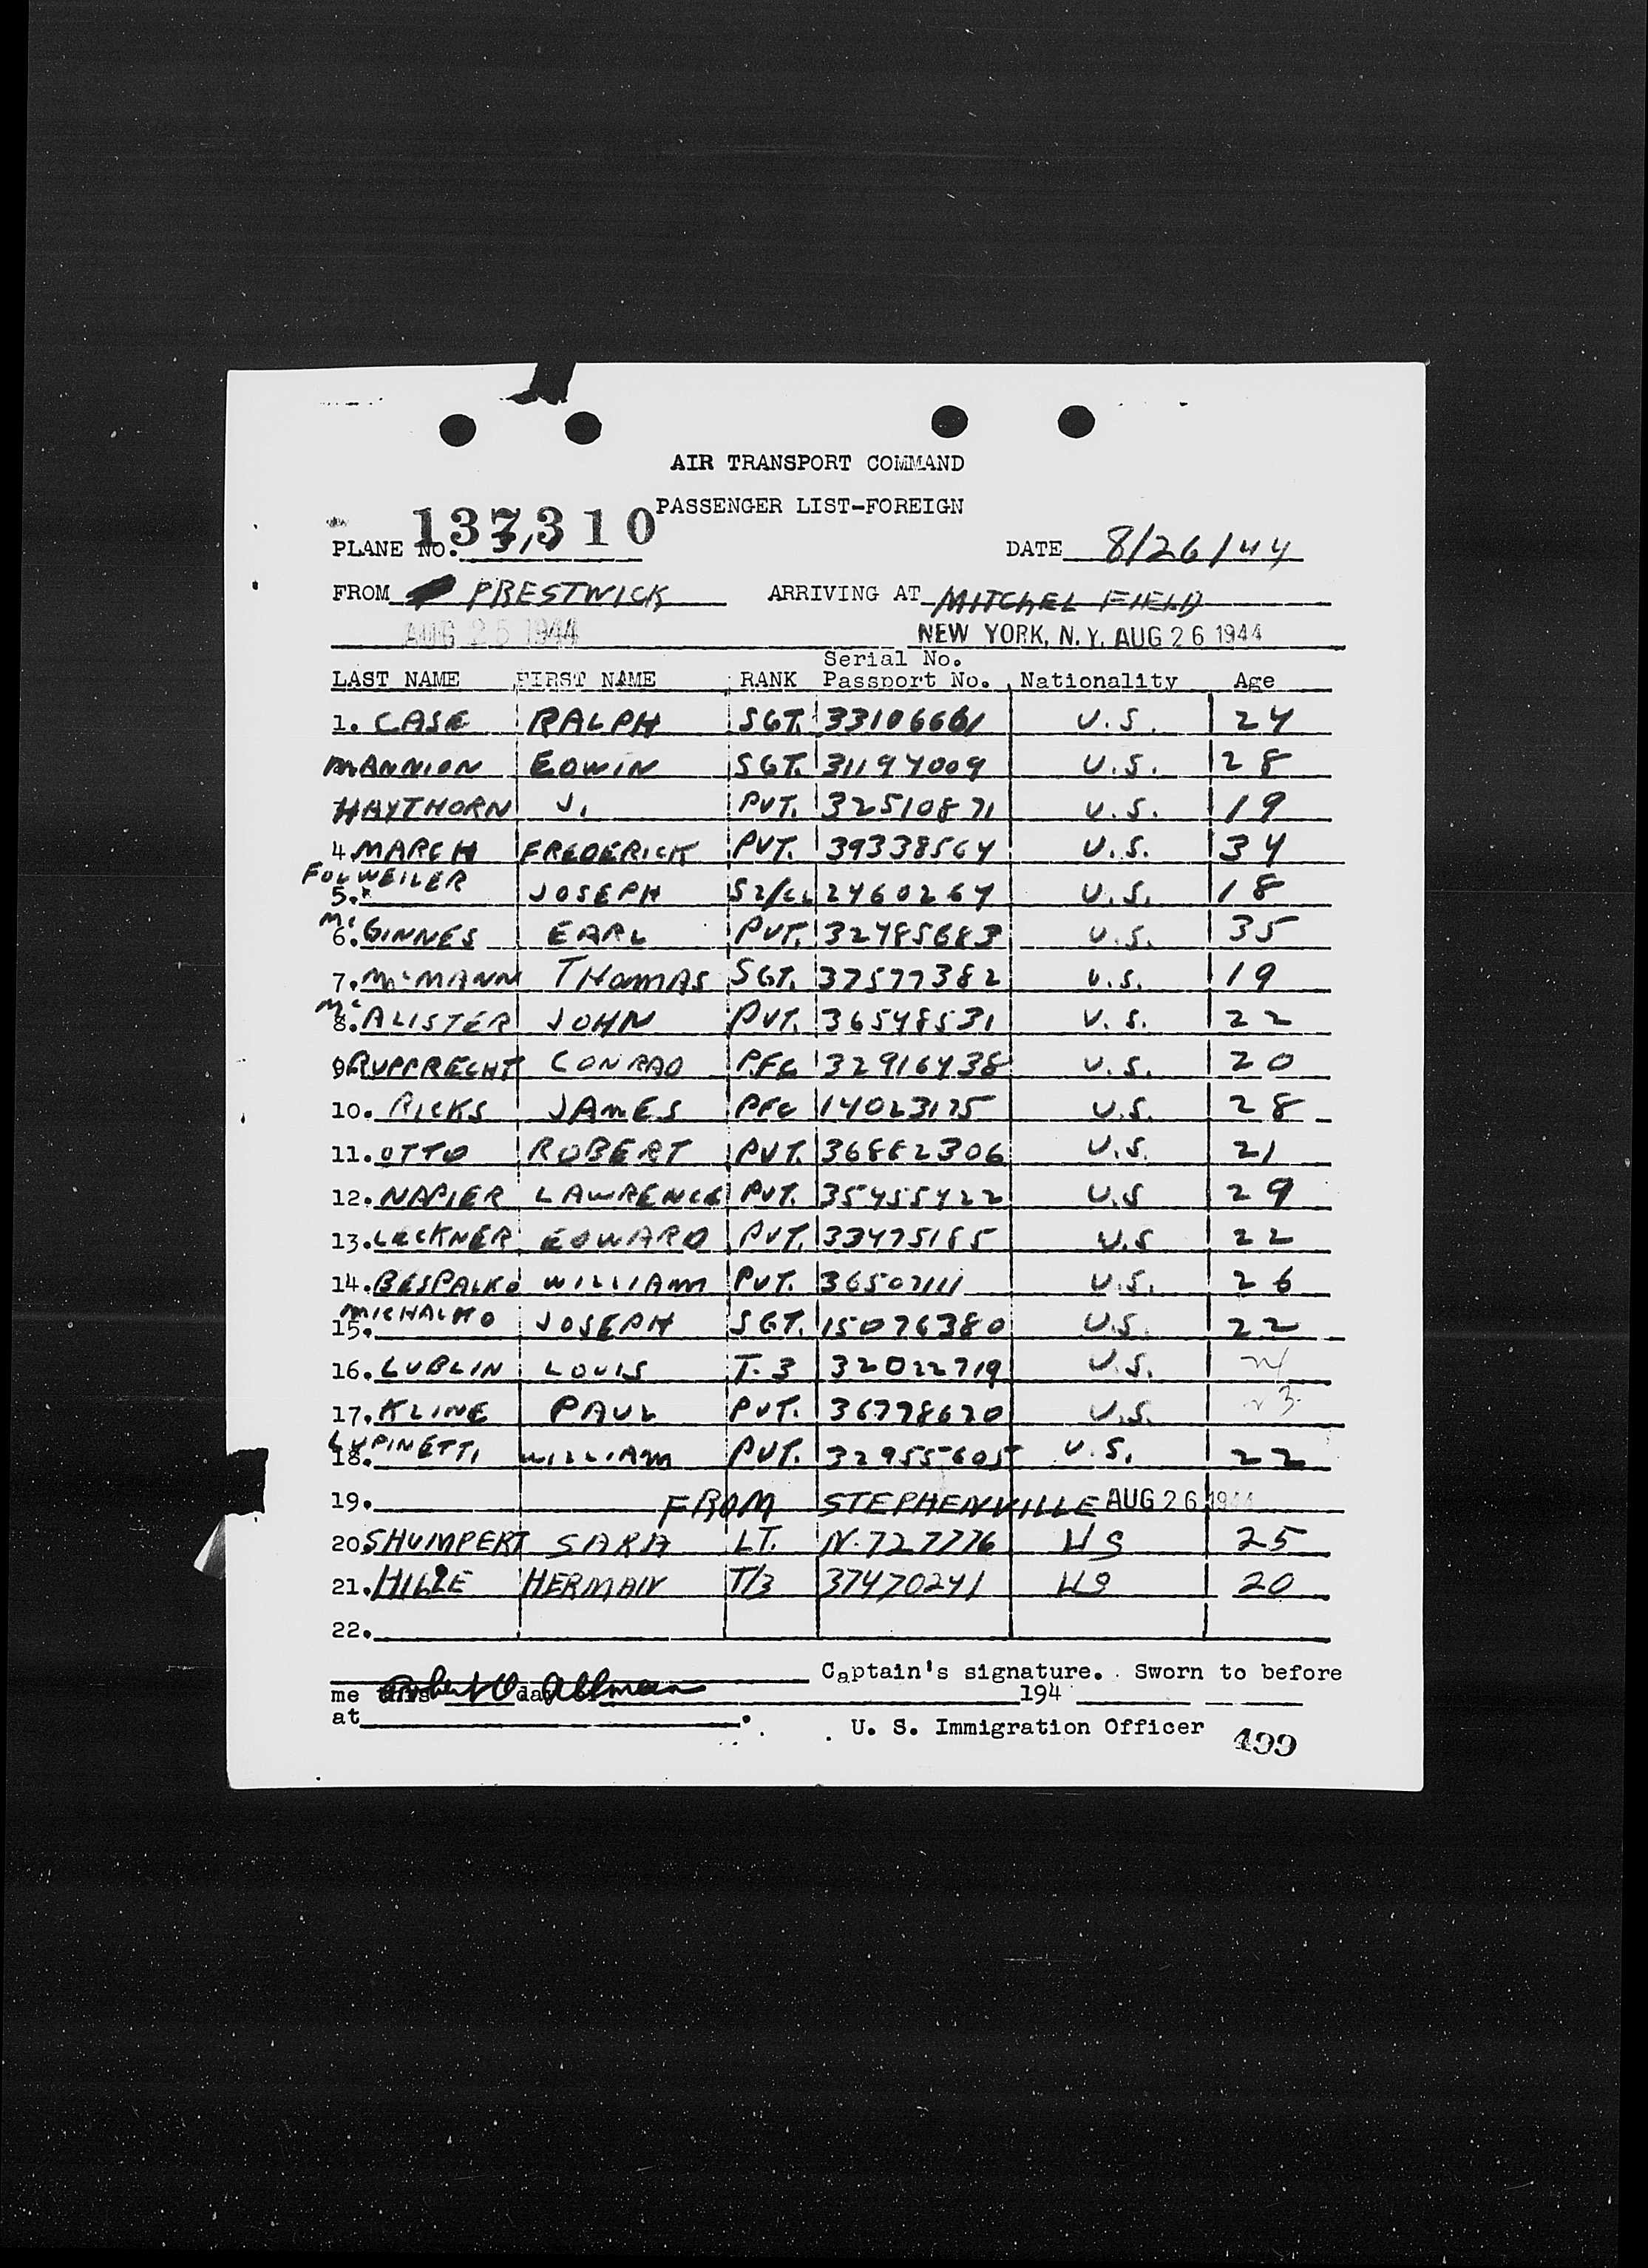 AIR TRANSPORT COMMAND
PASSENGER LIST-FOREIGN
137310
PLANE NO. 310 DATE 8/26/44
FROM PRESTWICK ARRIVING AT MITCHEL FIELD
AUG 25 1944 NEW YORK, N.Y. AUG 26 1944
Serial No.
LAST NAME FIRST NAME RANK Passport No. Nationality Age
1. CASE RALPH SGT. 33106661 U.S. 24
MANNION EDWIN SGT. 31194009 U.S. 28
HAYTHORN J. PVT. 32510871 U.S. 19
4 MARCH FREDERICK PVT. 39338564 U.S. 34
5. FOLWEILER JOSEPH S2/CL 2460267 U.S. 18
6. McGINNES EARL PVT. 32485683 U.S. 35
7. McMANN THOMAS SGT. 37577382 U.S. 19
8. McALISTER JOHN PVT. 36548531 U.S. 22
9 RUPPRECHT CONRAD PFC 32916438 U.S. 20
10. RICKS JAMES PFC 14023175 U.S. 28
11. OTTO ROBERT PVT. 36882306 U.S. 21
12. NAPIER LAWRENCE PVT. 35455422 U.S 29
13. LECKNER EDWARD PVT. 33475185 U.S 22
14. BESPALKO WILLIAM PVT. 36507111 U.S. 26
15. MICHALKO JOSEPH SGT. 15076380 U.S. 22
16. LUBLIN LOUIS T.3 32022719 U.S.
17. KLINE PAUL PVT. 36778620 U.S. 23
18. LUPINETTI WILLIAM PVT. 32955605 U.S. 22
19. FROM STEPHENVILLE AUG 26 1944
20. SHUMPERT SARA LT. N-727776 US 25
21. HILLE HERMAN T/3 37470241 US 20
22.
Captain's signature. Sworn to before
me this day 194
at .
U. S. Immigration Officer 499